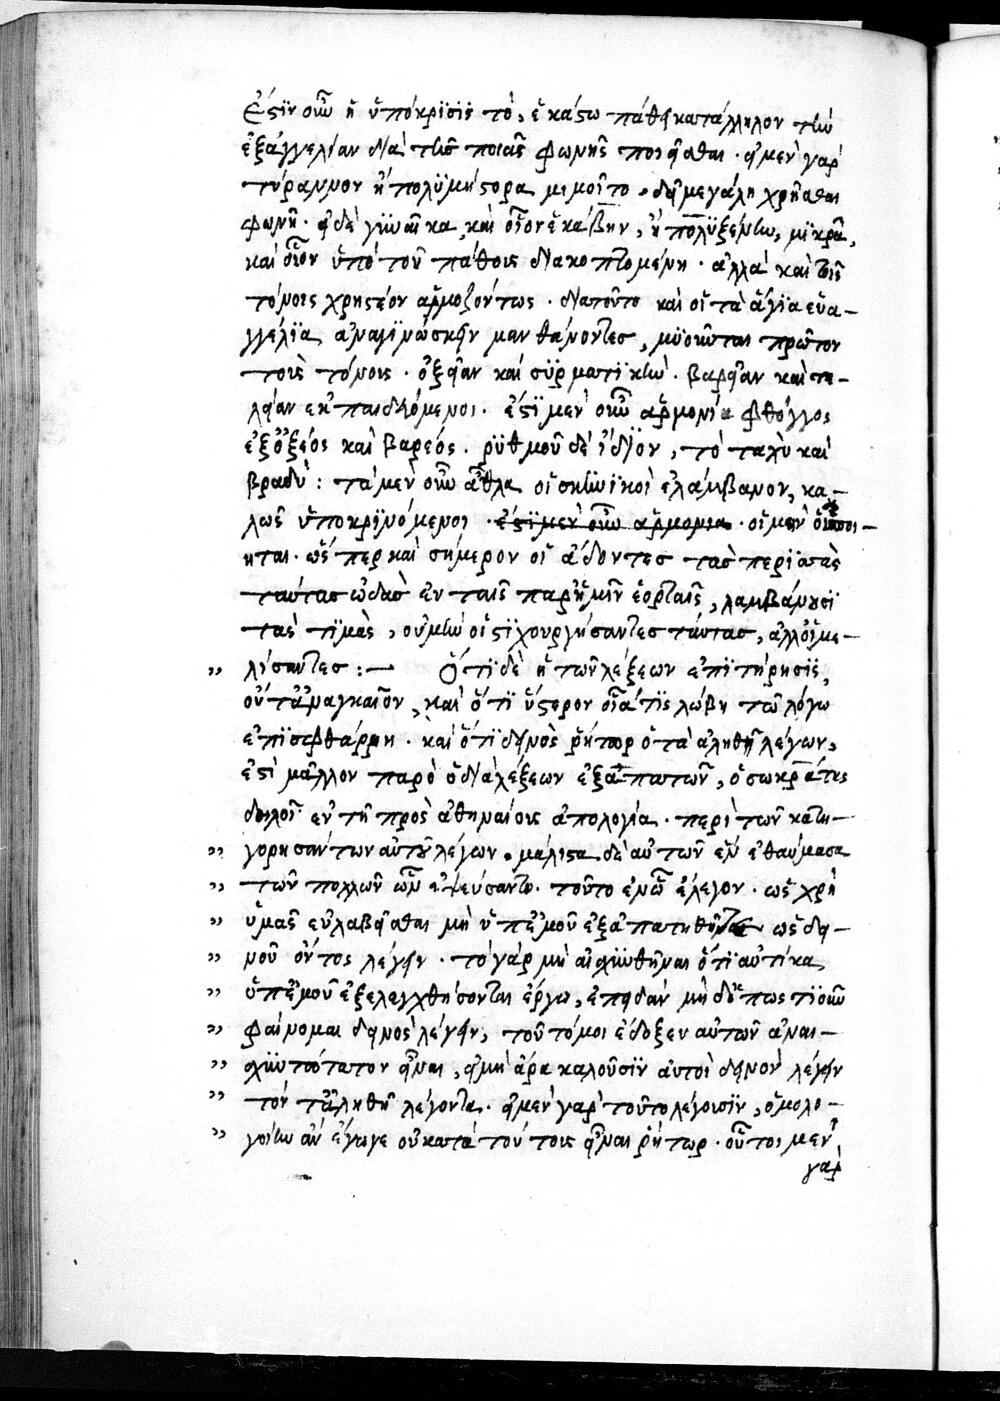 ἐστὶν οὖν ἡ ὑπόκρισις τὸ, ἑκάστω πάθει κατάλληλον τὴν
ἐξαγγελίαν διὰ τῆς ποιᾶς φωνῆς ποιεῖσθαι· εἰ μὲν γὰρ
τύραννον ἢ πολυμήστορα μιμοῖτο, δεῖ μεγάλη χρῆσθαι
φωνῆ· εἰ δὲ γυναῖκα, καὶ οἷον ἑκάβην, ἢ πολυξένην, μικρᾶ,
καὶ οἷον ὑπὸ τοῦ πάθους διακοπτομένη· ἀλλὰ καὶ τοῖς
τόνοις χρηστέον ἁρμοζόντως· διατοῦτο καὶ οἱ τὰ ἅγια εὐα-
γγέλια ἀναγινώσκειν μανθάνοντες, μυοῦνται πρῶτον
τοῖς τόνοις· ὀξεῖαν καὶ συρματικὴν· βαρεῖαν καὶ τε-
λείαν ἐκπαιδευόμενοι· ἐστὶ μὲν οὖν ἁρμονία φθόγγος
ἐξ ὀξέος καὶ βαρέος· ῥυθμοῦ δὲ ἴδιον, τὸ ταχὺ καὶ
βραδὺ: τὰ μὲν οὖν ἆθλα οἱ σκηνικοὶ ἐλάμβανον, κα-
λῶς ὑποκρινόμενοι· ἐστὶ μὲν οὖν ἁρμονία· οἱ μὲν
ηται· ὥσπερ καὶ σήμερον οἱ ἄδοντες τὰς περιττὰς
ταύτας ὠδὰς ἐν ταῖς παρ' ἡμῖν ἑορταῖς, λαμβάνουσι
τὰς τιμὰς, οὐ μὴν οἱ στιχουργήσαντες ταύτας, ἀλλ' οἱ με-
λίσαντες:— Ὅτι δὲ ἡ τῶν λέξεων ἐπιτήρησις,
οὔτ' ἀναγκαῖον, καὶ ὅτι ὕστερον οἷα τις λώβη τῶ λόγω
ἐπισεφθάρη· καὶ ὅτι δεινὸς ῥήτωρ ὁ τὰ ἀληθῆ λέγων,
ἐστὶ μᾶλλον παρὸ ὁ διὰ λέξεων ἐξαπατῶν, ὁ σωκράτης
δηλοῖ ἐν τῆ πρὸς ἀθηναίους ἀπολογία· περὶ τῶν κατη-
γορησάντων αὐτοῦ λέγων· μάλιστα δὲ αὐτῶν ἓν ἐθαύμασα
τῶν πολλῶν ὧν ἐψεύσαντο· τοῦτο ἐν ὧ ἔλεγον· ὡς χρὴ
ὑμᾶς εὐλαβεῖσθαι μὴ ὑπ' ἐμοῦ ἐξαπατηθῆτε ὡς δει-
νοῦ ὄντος λέγειν· τὸ γὰρ μὴ αἰσχυνθῆναι ὅτι αὐτίκα
ὑπ' ἐμοῦ ἐξελεγχθήσονται ἔργω, ἐπειδὰν μὴ δ' ὁπωστιοῦν
φαίνομαι δεινὸς λέγειν, τοῦτό μοι ἔδοξεν αὐτῶν ἀναι-
σχυντότατον εἶναι, εἰ μὴ ἄρα καλοῦσιν αὐτοὶ δεινὸν λέγειν
τὸν τἀληθῆ λέγοντα· εἰ μὲν γὰρ τοῦτο λέγουσιν, ὁμολο-
γοίην ἂν ἔγωγε οὐ κατὰ τούτους εἶναι ῥήτωρ· οὗτοι μὲν
γὰρ